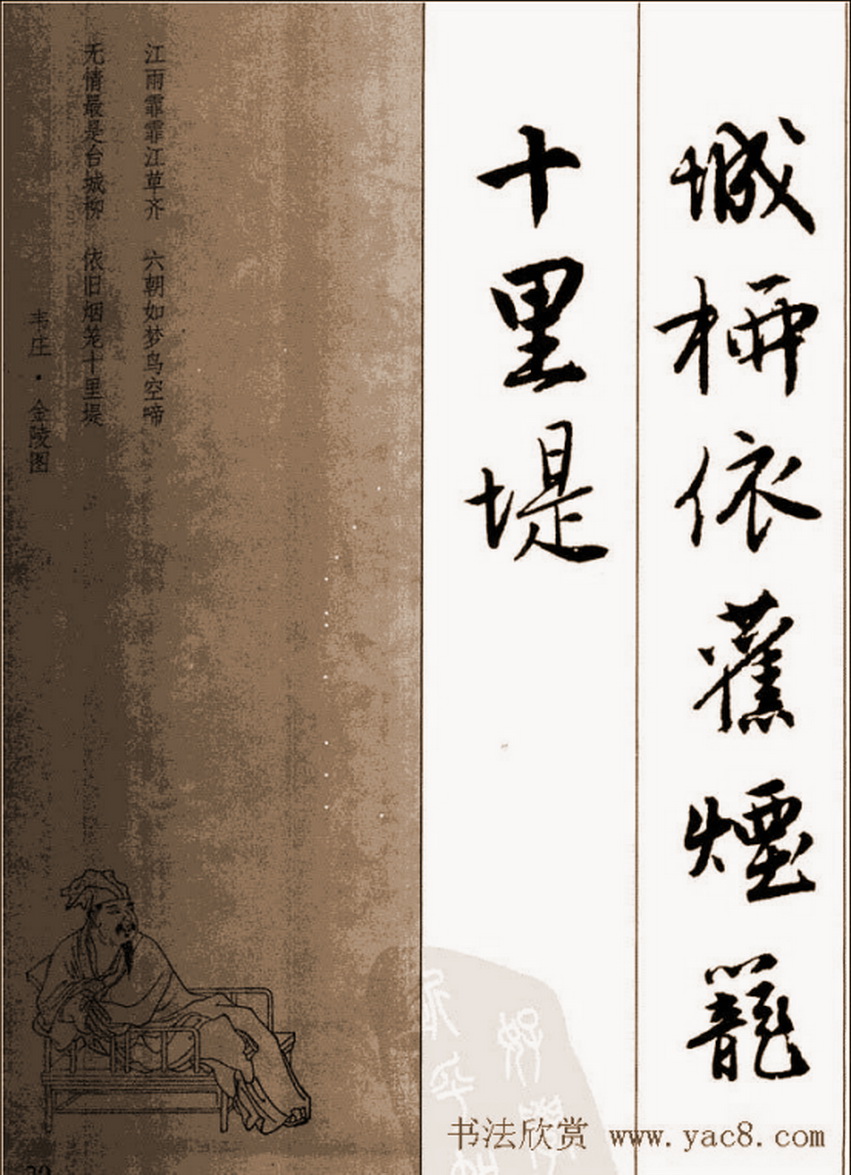 城桺依舊煙籠
十里堤
江雨霏霏江草齐 六朝如梦鸟空啼
无情最是台城柳 依旧烟笼十里堤
韦庄·金陵图
书法欣赏 www.yac8.com